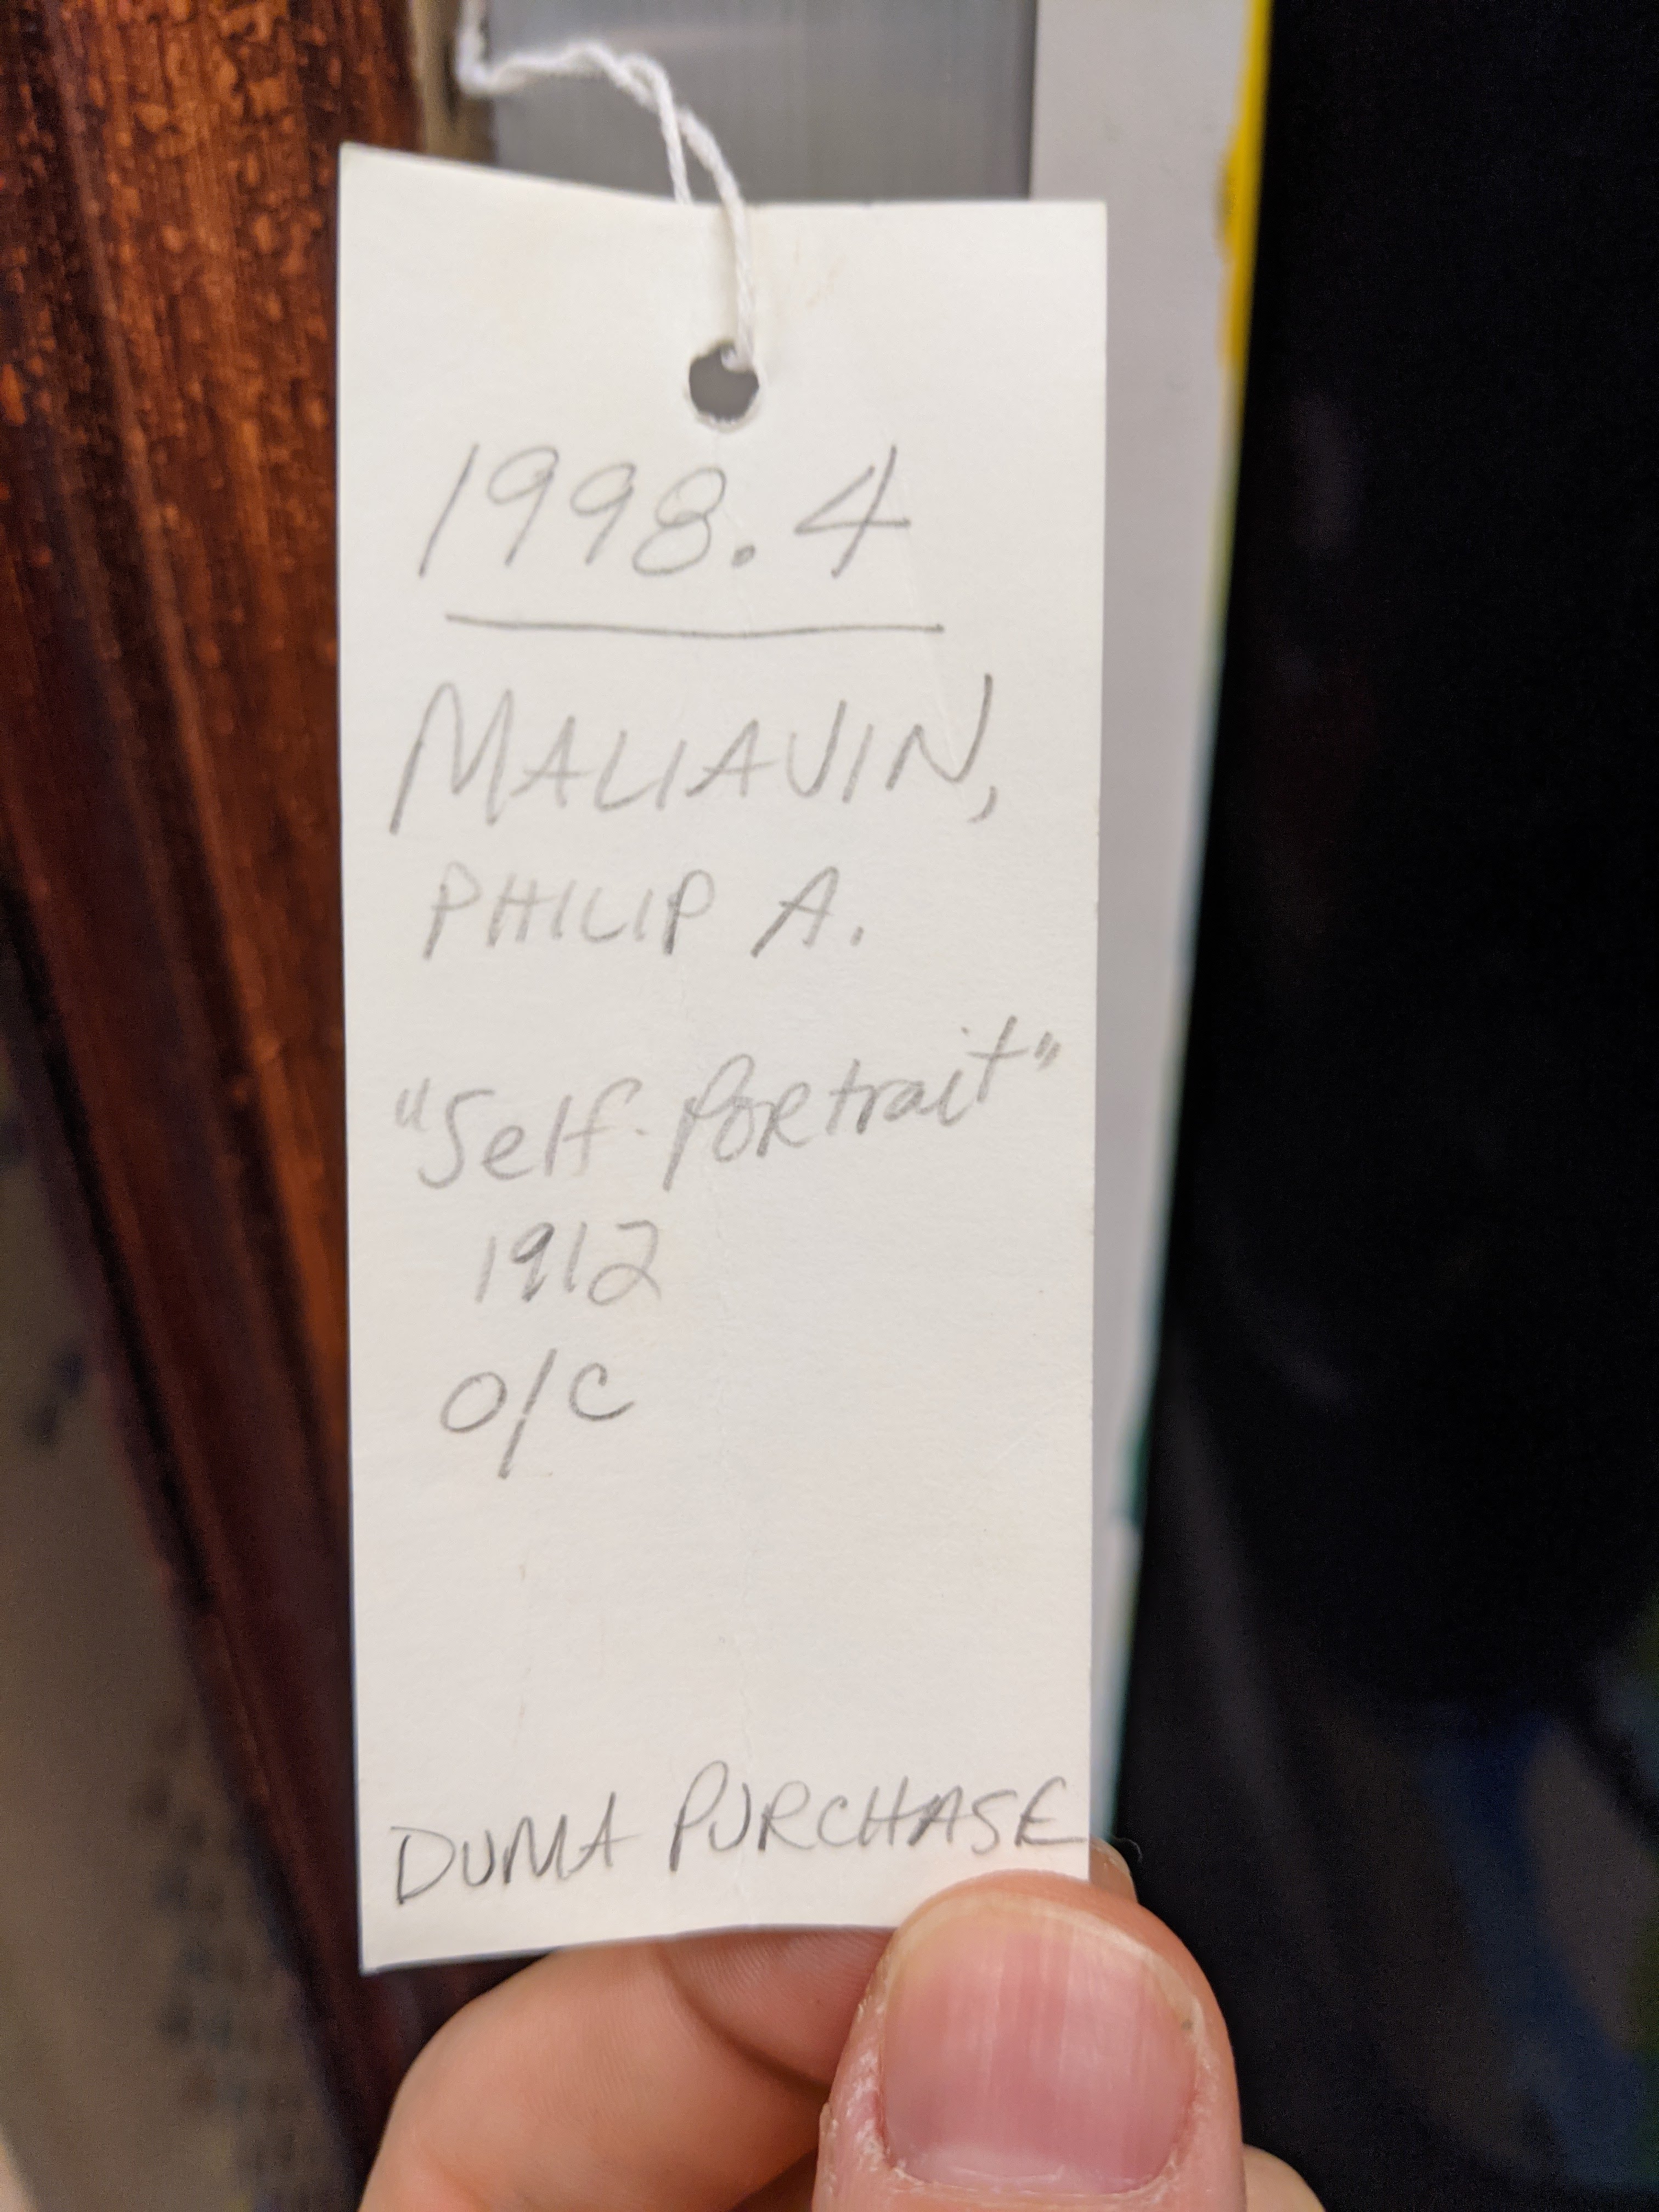 1998.4
MALIAVIN,
PHILIP A.
"Self-Portrait"
1912
O/C
DUMA PURCHASE